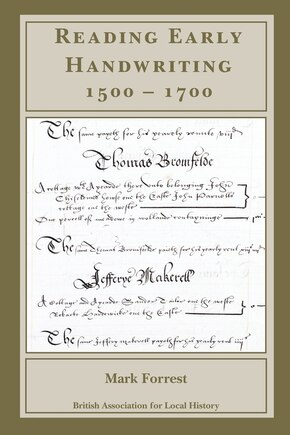 READING EARLY
HANDWRITING
1500 – 1700
The same payth for his yearly rente viijd
Thomas Bromfelde
A cottage and A yearde there unto belonging John
house one the Easte John
cottage one the weste
One percell of meadowe in
The same Thomas Bromfelde paith for his yearly rent
Jefferye Makerell
A Cottage and A yearde Tailor one the weste
one the Easte
The same Jeffery makerell payth for his yearly rent iiijd
Mark Forrest
British Association for Local History